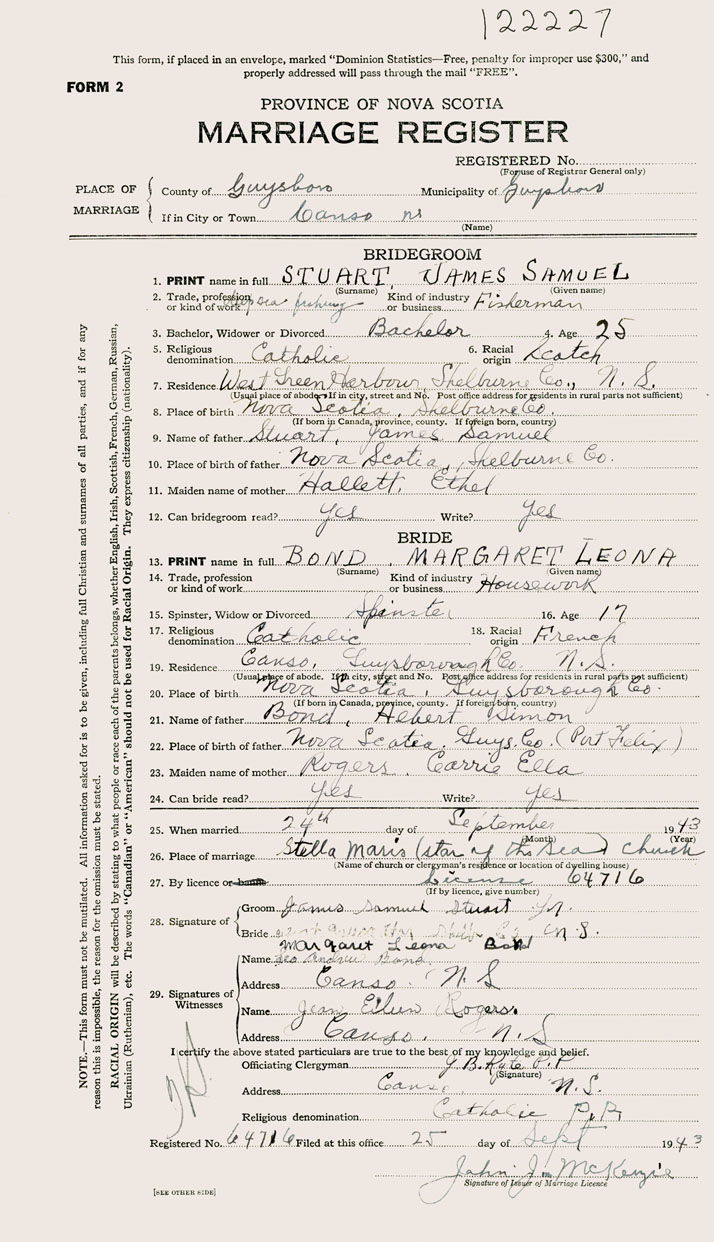 122227
This form, if placed in an envelope, marked "Dominion Statistics—Free, penalty for improper use $300," and
properly addressed will pass through the mail "FREE".
FORM 2
PROVINCE OF NOVA SCOTIA
MARRIAGE REGISTER
REGISTERED No.
(For use of Registrar General only)
PLACE OF MARRIAGE
County of Guysboro Municipality of Guysboro
If in City or Town Canso ns
(Name)
BRIDEGROOM
1. PRINT name in full STUART, JAMES SAMUEL
(Surname) (Given name)
2. Trade, profession or kind of work deepsea fishing Kind of industry or business Fisherman
3. Bachelor, Widower or Divorced Bachelor 4. Age 25
5. Religious denomination Catholic 6. Racial origin Scotch
7. Residence West Green Harbour, Shelburne Co., N. S.
(Usual place of abode. If in city, street and No. Post office address for residents in rural parts not sufficient)
8. Place of birth Nova Scotia, Shelburne Co.
(If born in Canada, province, county. If foreign born, country)
9. Name of father Stuart, James Samuel
10. Place of birth of father Nova Scotia, Shelburne Co.
11. Maiden name of mother Hallett, Ethel
12. Can bridegroom read? Yes Write? Yes
BRIDE
13. PRINT name in full BOND, MARGARET LEONA
(Surname) (Given name)
14. Trade, profession or kind of work Kind of industry or business Housework
15. Spinster, Widow or Divorced Spinster 16. Age 17
17. Religious denomination Catholic 18. Racial origin French
19. Residence Canso, Guysborough Co. N. S.
(Usual place of abode. If in city, street and No. Post office address for residents in rural parts not sufficient)
20. Place of birth Nova Scotia, Guysborough Co.
(If born in Canada, province, county. If foreign born, country)
21. Name of father Bond, Hebert Simon
22. Place of birth of father Nova Scotia, Guys. Co. (Port Felix)
23. Maiden name of mother Rogers, Carrie Ella
24. Can bride read? Yes Write? yes
25. When married 24th day of September 1943
(Month) (Year)
26. Place of marriage Stella Maris (star of the Sea) church
(Name of church or clergyman's residence or location of dwelling house)
27. By licence or banns License 64716
(If by licence, give number)
28. Signature of
Groom James Samuel Stuart Jr.
Bride N. S.
Margaret Leona Bond
29. Signatures of Witnesses
Name Leo Andrew Bond
Address Canso. N. S
Name Jean Ellen Rogers.
Address Canso, N. S
I certify the above stated particulars are true to the best of my knowledge and belief.
Officiating Clergyman G. B. Kyte P.P.
(Signature)
Address Canso N. S.
Religious denomination Catholic P.P.
Registered No. 64716 Filed at this office 25 day of Sept 1943
John J. McKenzie
Signature of Issuer of Marriage Licence
[SEE OTHER SIDE]
NOTE.—This form must not be mutilated. All information asked for is to be given, including full Christian and surnames of all parties, and if for any
reason this is impossible, the reason for the omission must be stated.
RACIAL ORIGIN will be described by stating to what people or race each of the parents belongs, whether English, Irish, Scottish, French, German, Russian,
Ukrainian (Ruthenian), etc. The words "Canadian" or "American" should not be used for Racial Origin. They express citizenship (nationality).